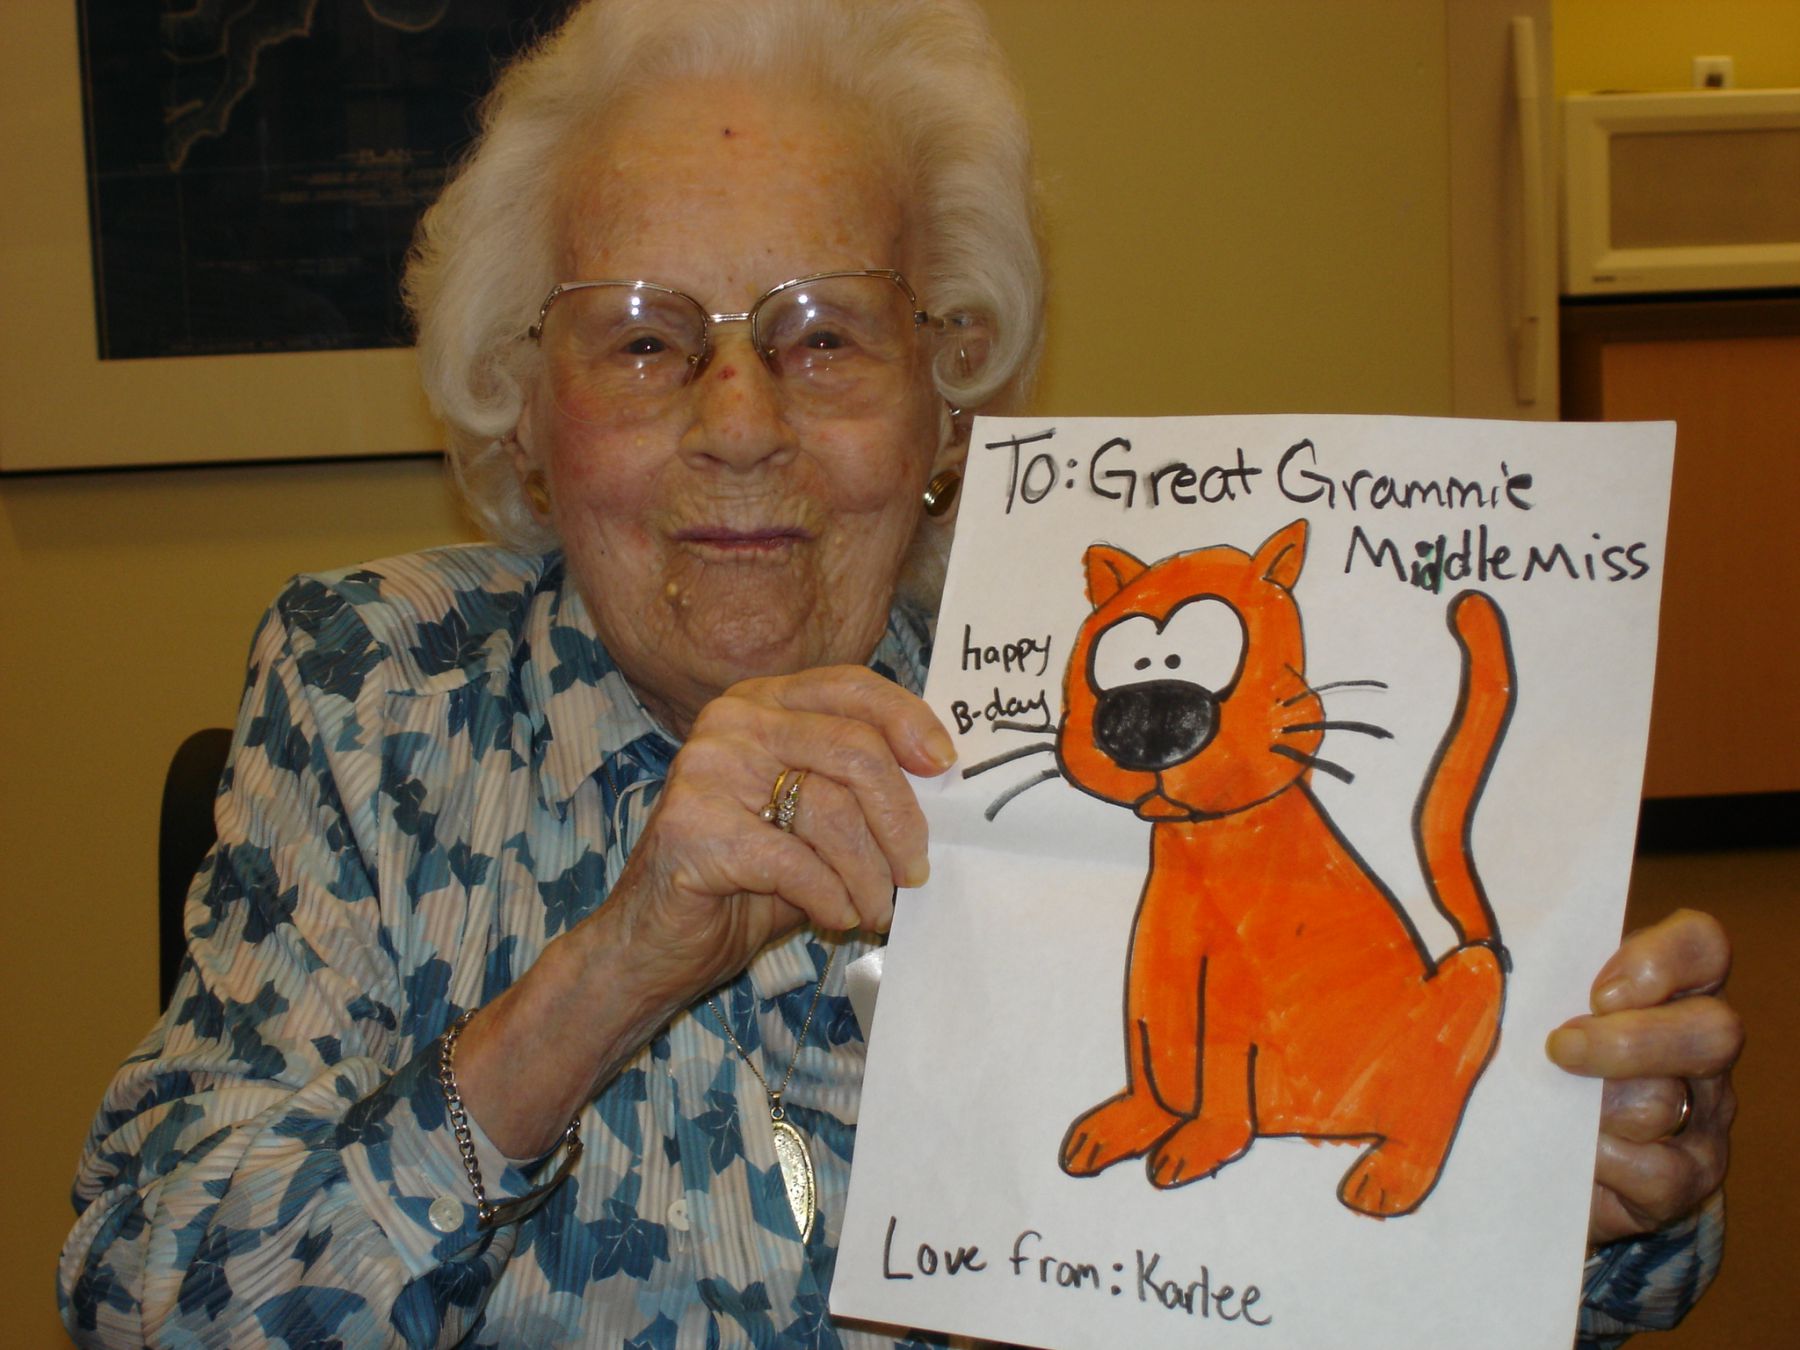 PLAN
To: Great Grammie
MiddleMiss
happy
B-day
Love from: Karlee